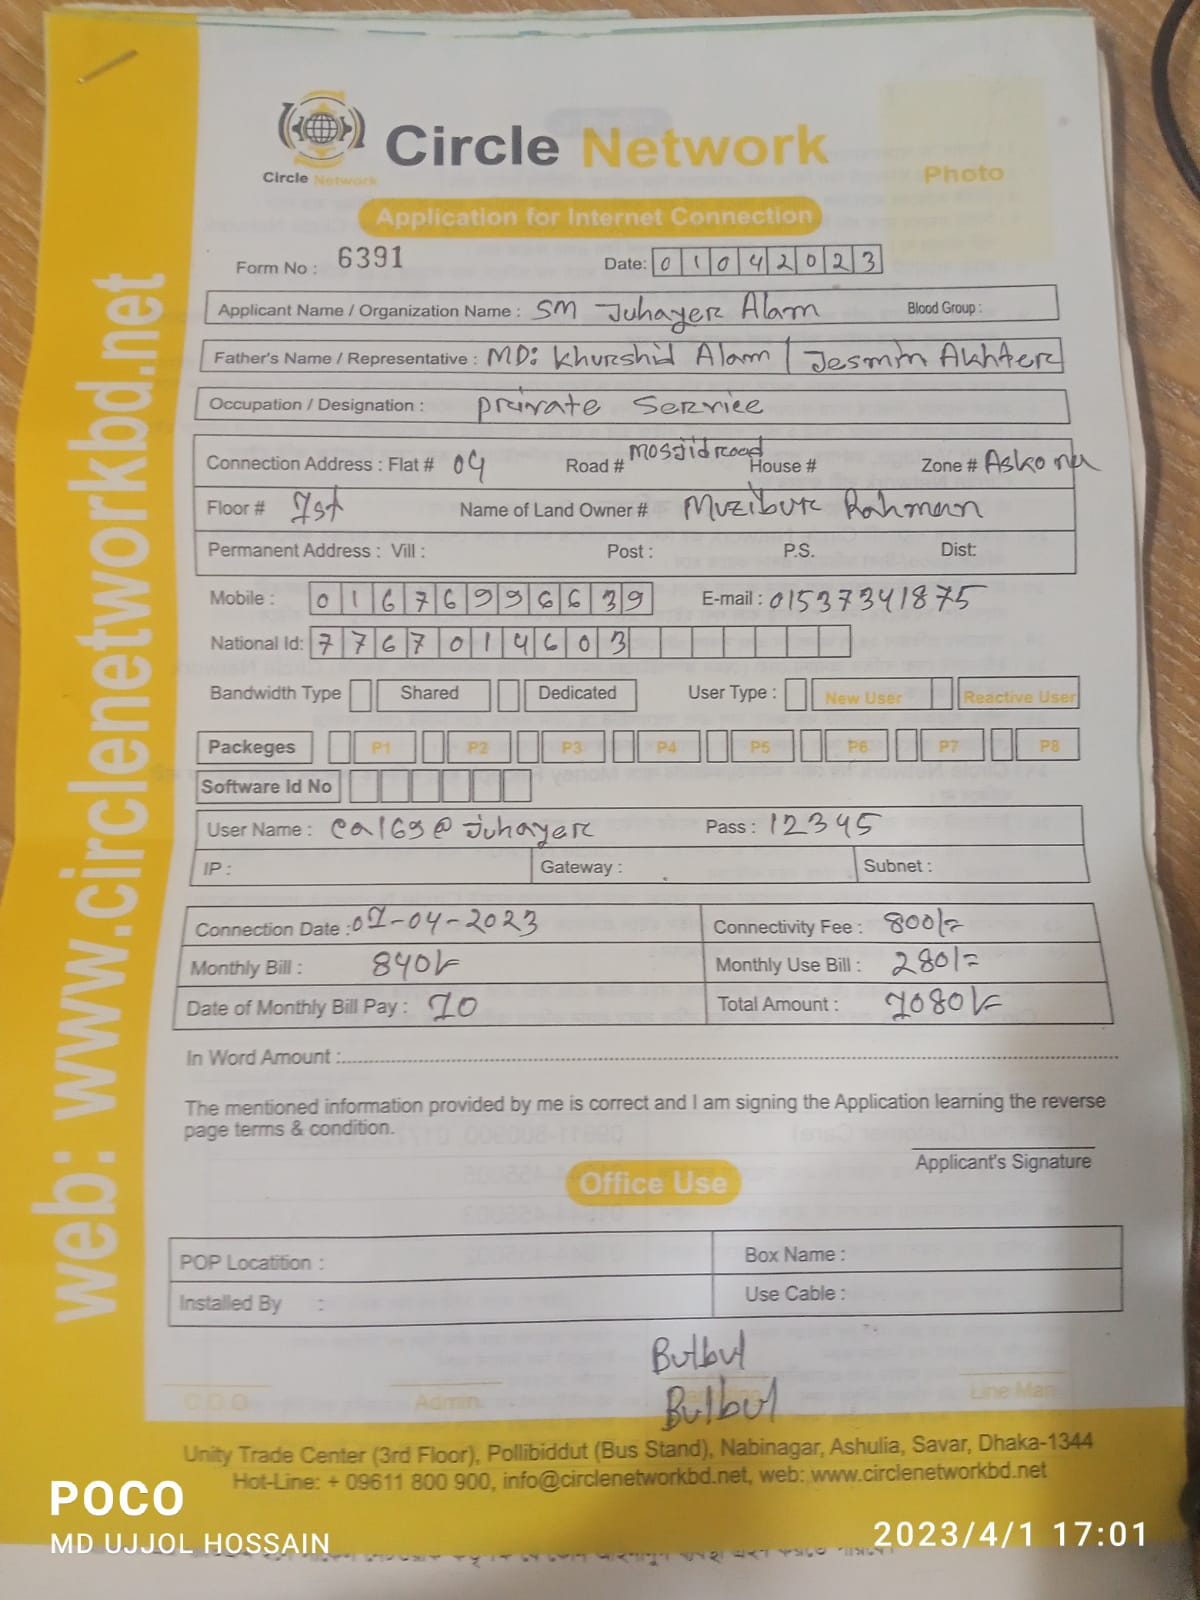 Circle Network
Circle Network
Photo
Application for Internet Connection
Form No : 6391 Date: 01042023
Applicant Name / Organization Name : SM Juhayer Alam Blood Group :
Father's Name / Representative : MD: Khurshid Alam / Jesmin Akhter
Occupation / Designation : private Service
Connection Address : Flat # 04 Road # Mosjid road House # Zone # Askona
Floor # 1st Name of Land Owner # Muzibur Rahman
Permanent Address : Vill : Post : P.S. Dist:
Mobile : 01676996639 E-mail : 01537341875
National Id: 7767014603
Bandwidth Type Shared Dedicated User Type : New User Reactive User
Packeges P1 P2 P3 P4 P5 P6 P7 P8
Software Id No
User Name : ca169@juhayer Pass : 12345
IP : Gateway : Subnet :
Connection Date : 01-04-2023 Connectivity Fee : 800/=
Monthly Bill : 840/- Monthly Use Bill : 280/=
Date of Monthly Bill Pay : 10 Total Amount : 1080/-
In Word Amount :
The mentioned information provided by me is correct and I am signing the Application learning the reverse
page terms & condition.
Applicant's Signature
Office Use
POP Locatition : Box Name :
Installed By : Use Cable :
Bulbul
C.O.O Admin Bulbul Line Man
Unity Trade Center (3rd Floor), Pollibiddut (Bus Stand), Nabinagar, Ashulia, Savar, Dhaka-1344
Hot-Line: + 09611 800 900, info@circlenetworkbd.net, web: www.circlenetworkbd.net
web: www.circlenetworkbd.net
POCO
MD UJJOL HOSSAIN
2023/4/1 17:01